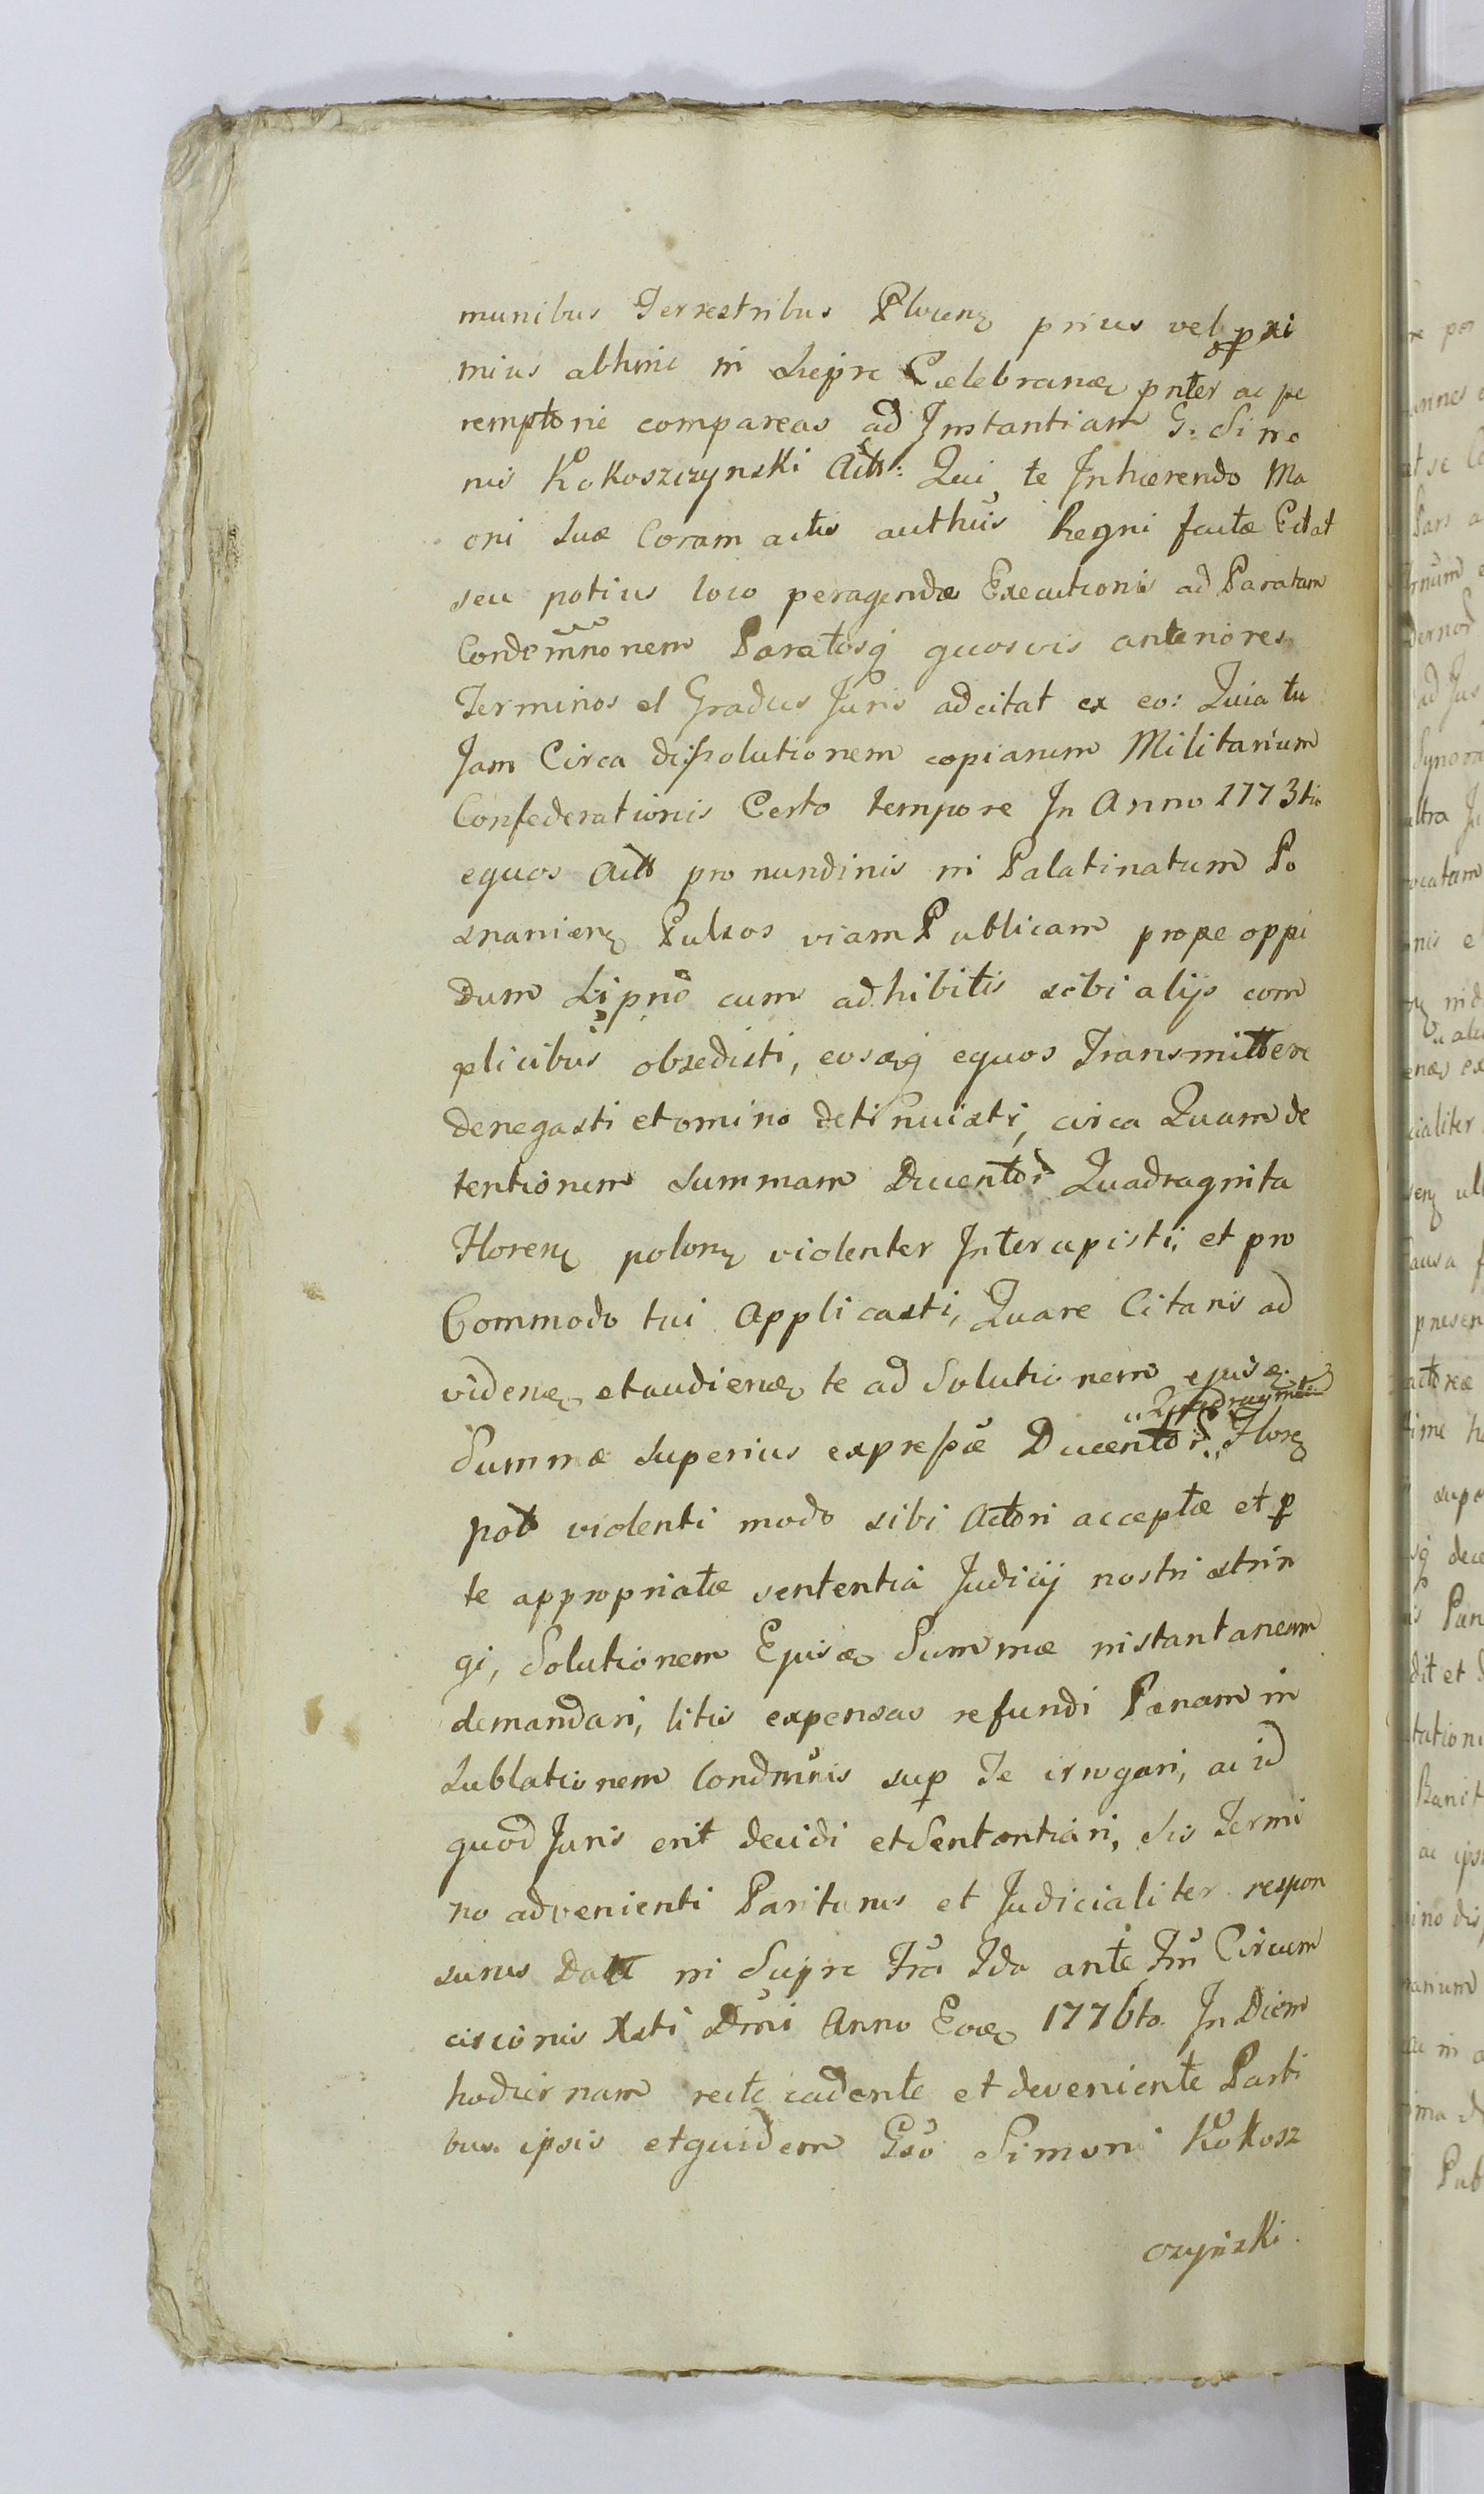 munibus Terrestribus Plocen prius vel proxi
mius abhinc in Siepre Caelebranae pnter ac pe
remptorie compareas ad Instantiam G. Simo
nis Kokoszczynski Act: Qui te Inhaerendo Ma
oni Suae Coram actis authuis Regni factae Citat
seu potius loco peragendae Executionis ad Paratam
Condemnonem Paratosq quosvis anteriores
Terminos et Gradus Juris adcitat ex eo: Quia tu
Jam Circa dissolutionem copiarum Militarium
Confederationis Certo tempore In Anno 1773tio
equos Act pro nundinis in Palatinatum Po
snanien Pulsos viam Publicam prope oppi
dum Lipno cum adhibitis sibi alijs com
plicibus obsedisti, eosq equos Transmittere
denegasti et omino detinuisti, circa Quam de
tentionem Summam Ducentor Quadraginta
Floren polon violenter Intercepisti, et pro
Commodo tui Applicasti, Quare Citaris ad
videnae et audienae te ad Solutionem ejusae
Quadragint
Summae Superius expressae Ducentor Floren
pol violenti modo sibi Actori acceptae et p
te appropriatae sententia Judicij nostri strin
gi, Solutionem Ejusae Summae instantaneam
demandari, litis expensas refundi Paenam in
Sublationem Condmnis sup Te irrogari, ac id
quod Juris erit decidi et Sententiari, Sis Termi
no advenienti Pariturus et Judicialiter respon
surus Datt in Siepre Fra Ida ante Fm Circum
cisionis Xsti Dmi Anno Eoae 1776to. In Diem
hodiernam recte cadente et deveniente Parti
bus ipsis et quidem Gso Simoni Kokosz
czynski.